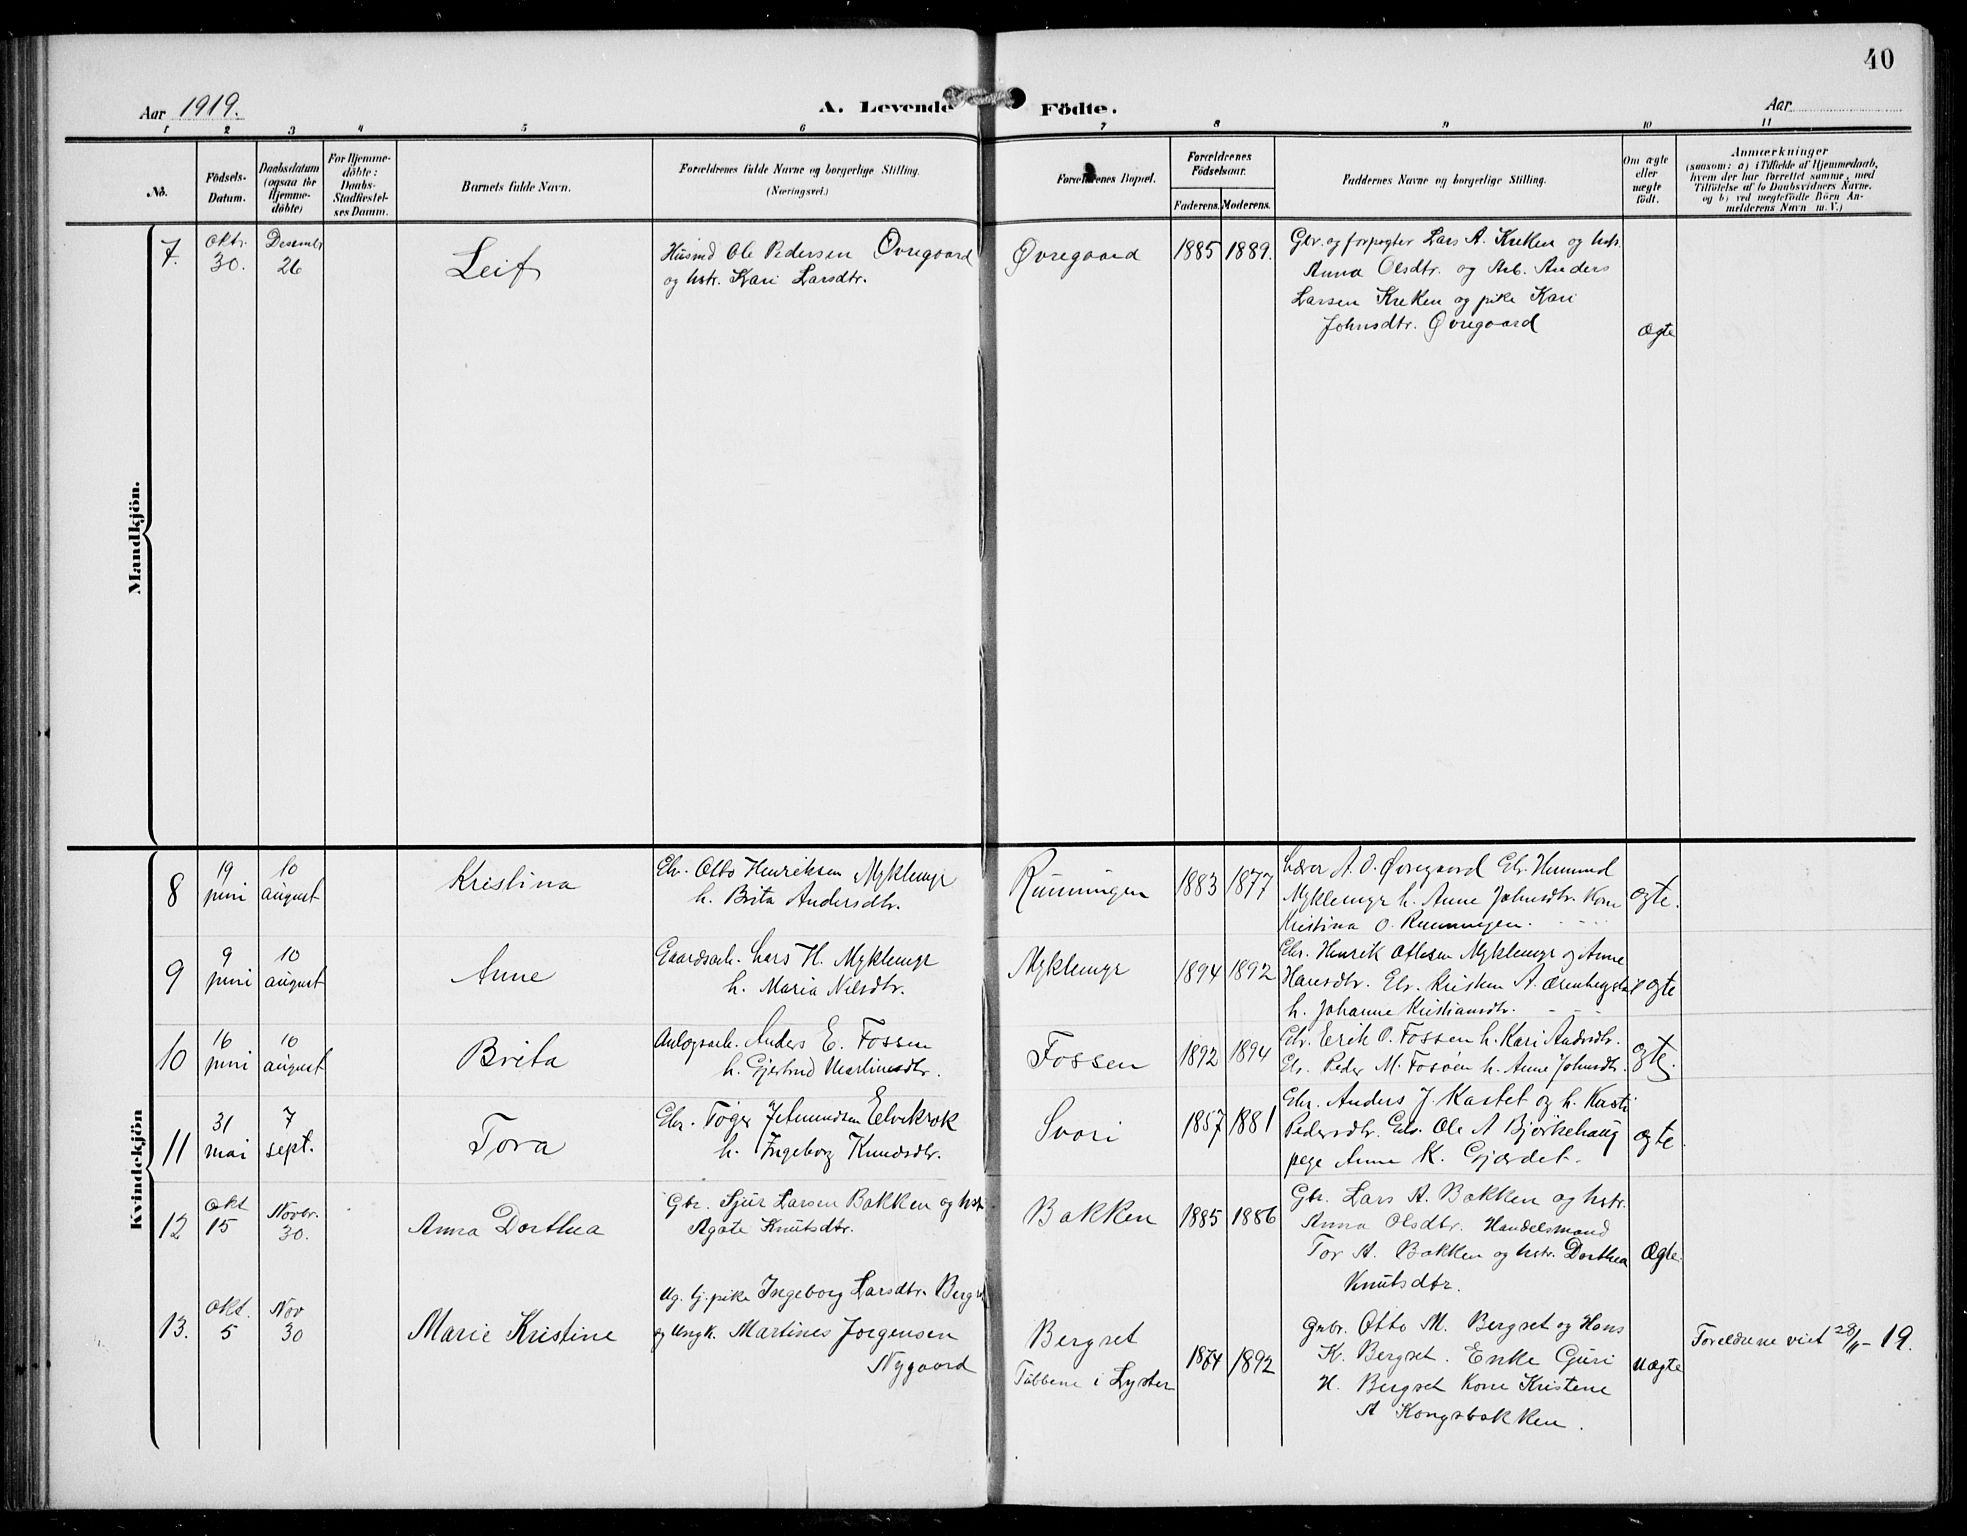 40
Aar 1919.
A. Levende Födte.
Aar
1 2 3 4 5 6 7 8 9 10 11
No.
Födsels-
Datum.
Daabsdatum
(ogsaa for
Hjemme-
döbte)
For Hjemme-
döbte:
Daabs-
Stadfæstel-
ses Datum.
Barnets fulde Navn.
Forældrenes fulde Navne og borgerlige Stilling.
(Næringsvei.)
Forældrenes Bopæl.
Forældrenes
Födselsaar.
Faderens. Moderens.
Faddernes Navne og borgerlige Stilling.
Om ægte
eller
uægte
födt.
Anmærkninger
(saasom: a) i Tilfælde af Hjemmedaab,
hvem der har forrettet samme, med
Tilföielse af to Daabsvidners Navne,
og b) ved uægtefödte Börn An-
melderens Navn m. V.)
Mandkjön.
7.
Oktr.
30.
Desember
26
Leif
Husmd Ole Pedersen Øvregaard
og hstr. Kari Larsdtr.
Øvregaard
1885 1889.
Gbr. og forpagter Lars A. Kreken og hstr.
Anna Olsdtr. og Arb. Anders
Larsen Kreken og pike Kari
Johnsdtr. Øvregaard
Ægte
Kvindekjön
8
19
juni
10
august
Kristina
Gbr. Otto Henriksen Myklemyr
h. Brita Andersdtr.
Runningen
1883 1877
Lærer A. O. Øvregaard Gbr. Hermund
Myklemyr h. Anne Johnsdtr. Kone
Kristina O. Runningen.
ægte.
9
9
juni
10
august
Anne
Gaardsarb. Lars H. Myklemyr
h. Maria Nilsdtr.
Myklemyr
1894 1892
Gbr. Henrik Ottesen Myklemyr og Anne
Hansdtr. Gbr. Kristen A.
h. Johanne Kristiansdtr.
ægte
10
16
juni
10
august
Brita
Anlægsarb. Anders E. Fossen
h. Gjertrud Martinusdtr.
Fossen
1892 1894
Gbr. Erik O. Fossen h. Kari Andrsdtr.
Gbr. Peder M. Fosøen h. Anne Johnsdtr.
ægte.
11
31
mai
7
sept.
Tora
Gbr. Tøger Jetmundsen Elvekrok
h. Ingeborg Knudsdtr.
Svori
1857 1881
Gbr. Anders J. Kastet og h. Kasti
Pedersdtr. Gbr. Ole A Bjørkehaug
pige Anne K. Gjærdet.
ægte
12
Okt
15
Novbr.
30.
Anna Dorthea
Gbr. Sjur Larsen Bakken og hstr
Agate Knutsdtr.
Bakken
1885 1886
Gbr. Lars A. Bakken og hstr.
Anna Olsdtr. Handelsmand
Tor A. Bakken og hstr. Dorthea
Knutsdtr.
Ægte
13.
Okt.
5
Nov
30
Marie Kristine
Ug. Gj. pike Ingeborg Larsdtr. Bergset
og Ungk. Martines Jørgensen
Nygaard
Bergset
Tubbene i Lyster
1874 1892
Gbr. Otto M. Bergset og Hans
K. Bergset. Enke Guri
H. Bergset Kone Kristene
A Kongsbakken.
Uægte
Foreldrene viet 28/11-19.